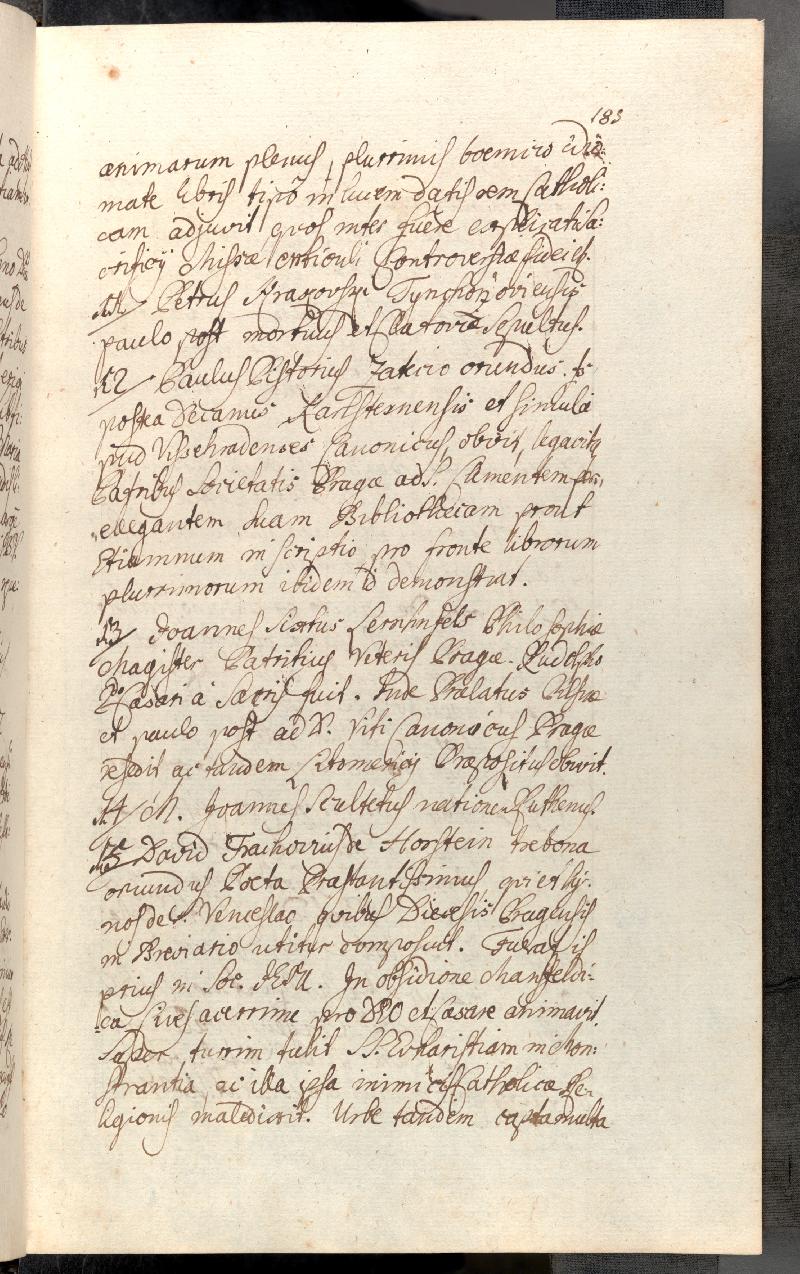 183
animarum plenus, plurimis boemico idio:
mate libris typo in lucem datis rem Catholi:
cam adjuvit quos inter fuere explicatio Sa:
crificij Missæ articuli Controversiæ fidei etc.
11/ Petrus Tynchonoviensis
paulo post mortuus et Clatoviæ Sepultus.
12/ Paulus Pistorius Zatecio oriundus. is
postea Decanus Karlsteinensis et simul a
pud Vissehradenses Canonicus, obiit, legavitq
Patribus Societatis Pragæ ad S. Clementem
elegantem suam Bibliothecam prout
Etiamnum inscriptio pro fronte librorum
plurimorum ibidem id demonstrat.
13/ Joannes Sixtus Lernfels Philosophiæ
Magister Patritius Veteris Pragæ. Rudolpho
2do Cæsari a Sacris fuit. Inde Prælatus Pilsnæ
et paulo post ad D. Viti Canonicus Pragæ
resedit ac tandem Litomericij Præpositus obivit.
14/ M. Joannes Scultetus natione Ruthenus.
15 David Trachovius de Horstein trebona
oriundus Poeta Præstantissimus, qui et hy:
nos de S. Venceslao quibus Diœcesis Pragensis
in Breviario utitur composuit. Fuerat is
prius in Soc. JESU. In obsidione Mansfeldi:
ca Cives acerrime pro DEO et Cæsare animavit,
Super turrim tulit SS. Eucharistiam in Mon:
strantia, ac illa ipsa inimicis Catholicæ Re:
ligionis maledixit. Urbe tandem capta multa